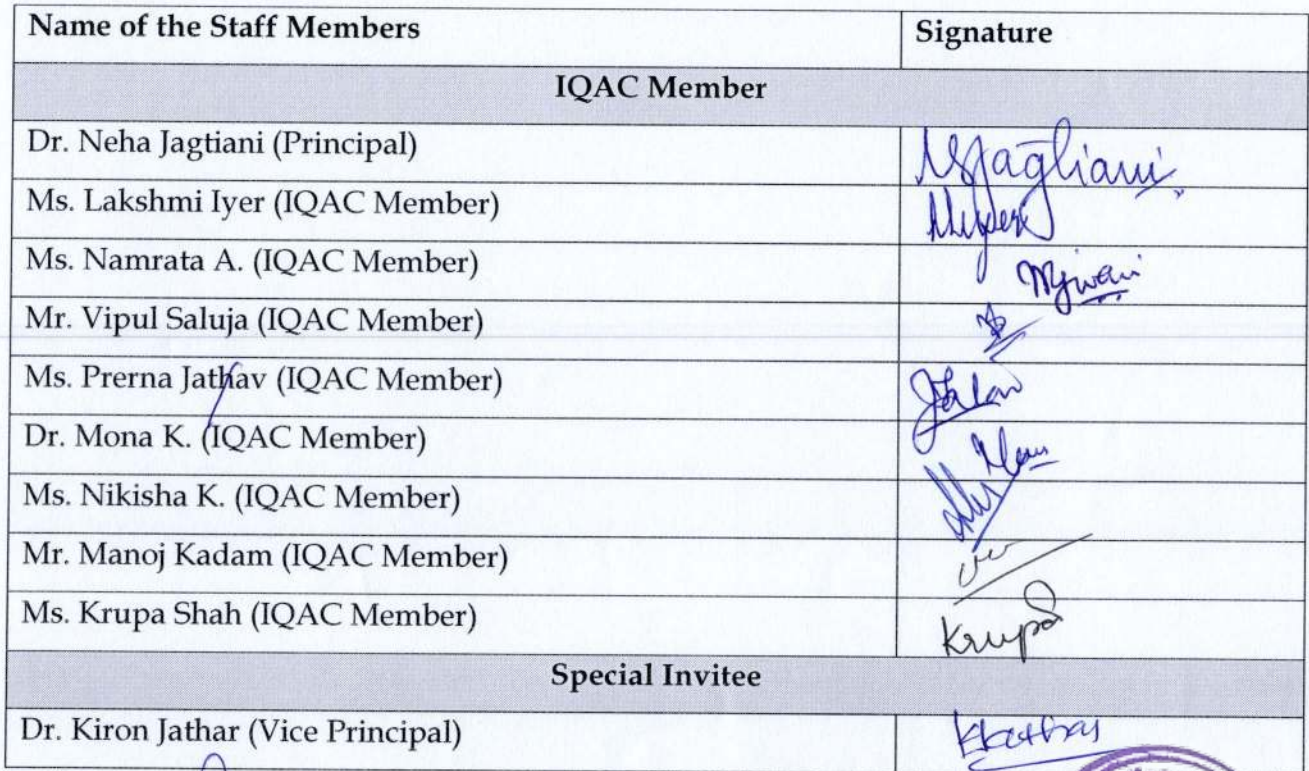 Name of the Staff Members Signature
IQAC Member
Dr. Neha Jagtiani (Principal) NJagtiani
Ms. Lakshmi Iyer (IQAC Member)
Ms. Namrata A. (IQAC Member)
Mr. Vipul Saluja (IQAC Member)
Ms. Prerna Jathav (IQAC Member)
Dr. Mona K. (IQAC Member)
Ms. Nikisha K. (IQAC Member)
Mr. Manoj Kadam (IQAC Member)
Ms. Krupa Shah (IQAC Member) Krupa
Special Invitee
Dr. Kiron Jathar (Vice Principal) KJathar